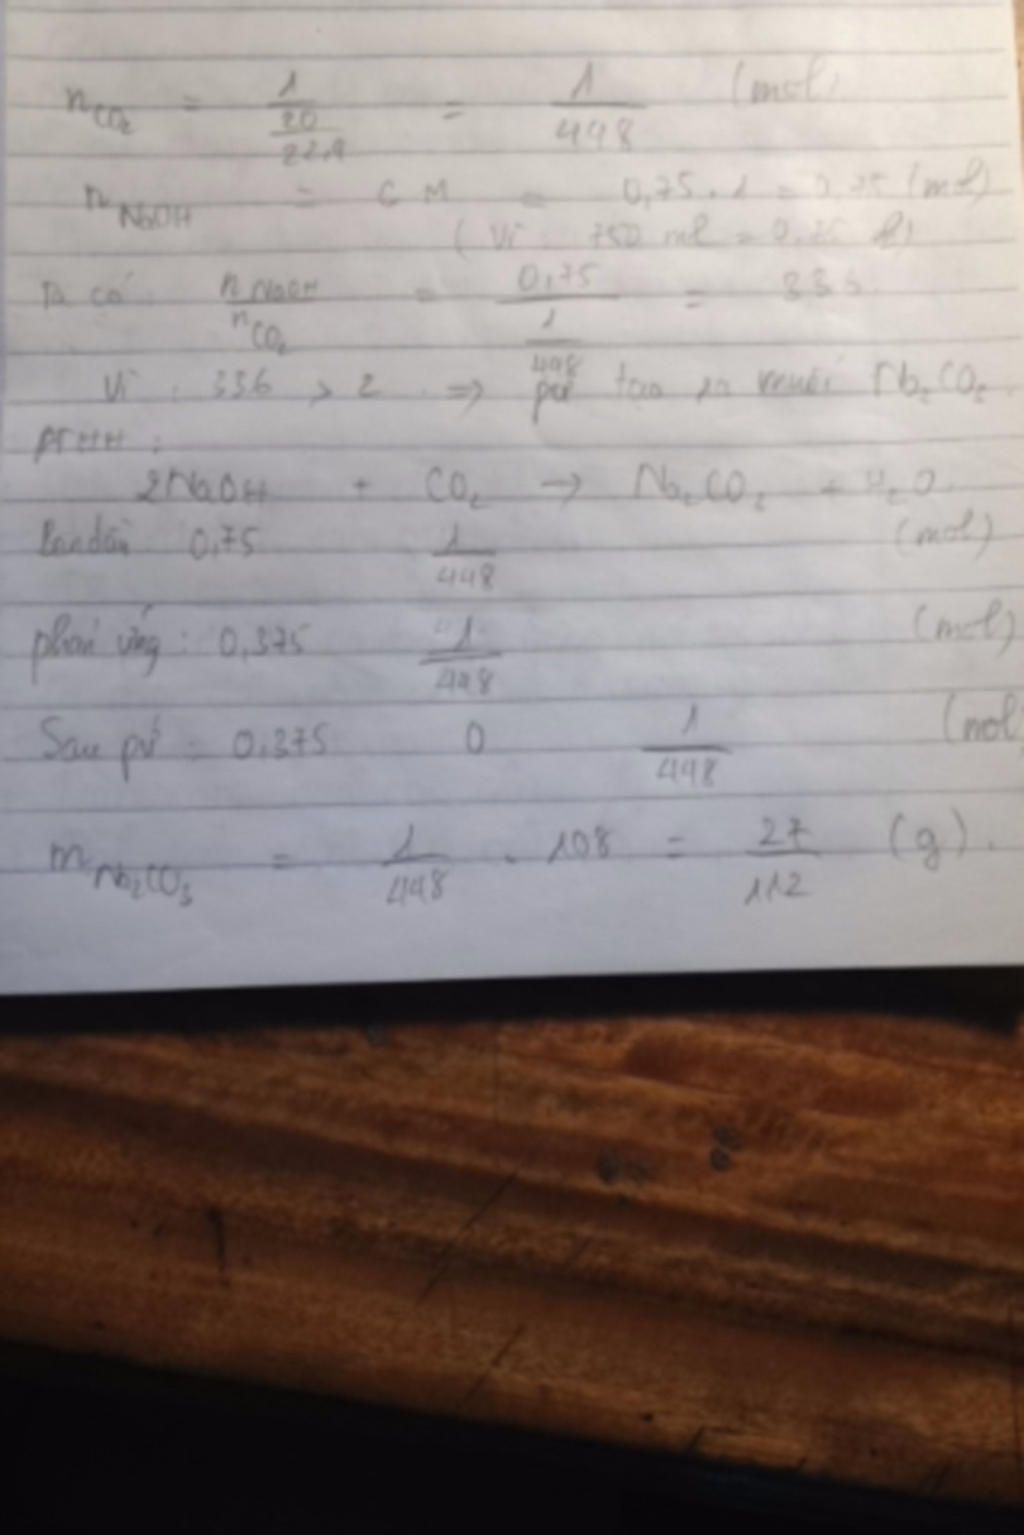 n CO2 = 1/20/22,4 = 1/448 (mol)
n NaOH = C M = 0,75 . 1 = 0,75 (mol)
( Vì : 750 ml = 0,75 l)
Ta có n NaOH / n CO2 = 0,75 / 1/448 = 336
Vì : 336 > 2 => pứ tạo ra muối Na2CO2.
PTHH :
2NaOH + CO2 → Na2CO2 + H2O
Ban đầu 0,75 1/448 (mol)
phản ứng : 0,375 1/448 (mol)
Sau pứ : 0,375 0 1/448 (mol
m Na2CO3 = 1/448 . 108 = 27/112 (g).